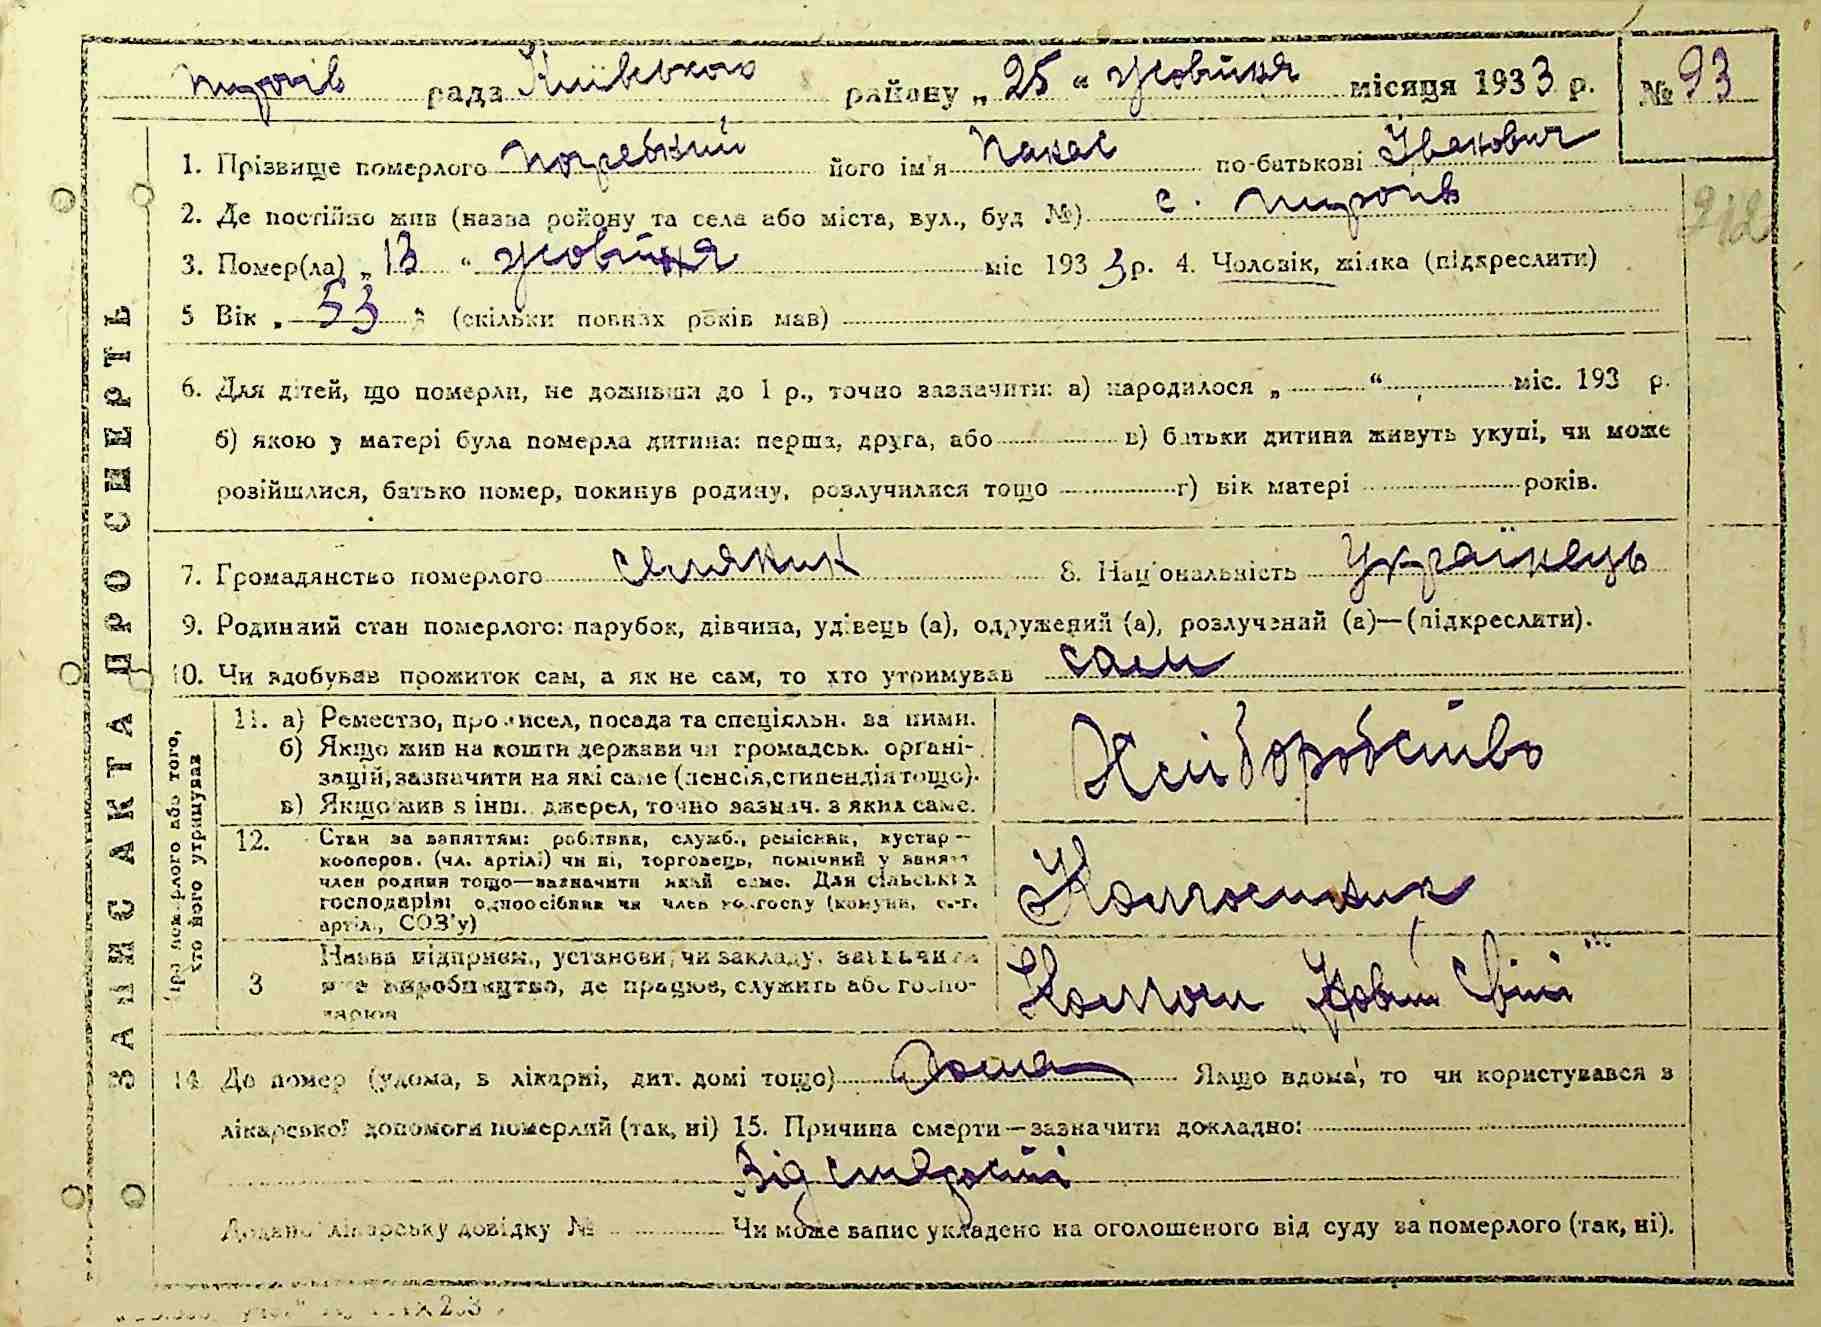 Пирогів рада Київського району „ 25 “ жовтня місяця 1933 р. № 93
1. Прізвище померлого Погребний його ім'я Панас по-батькові Іванович
2. Де постійно жив (назва району та села або міста, вул., буд №) с. Пирогів
212
3. Помер(ла) „ 13 “ жовтня міс 1933 р. 4. Чоловік, жінка (підкреслити)
5 Вік „ 53 “ (скільки повних років мав)
6. Для дітей, що померли, не доживши до 1 р., точно зазначити: а) народилося „ “ міс. 193 р.
б) якою у матері була померла дитина: перша, друга, або в) батьки дитини живуть укупі, чи може
розійшлися, батько помер, покинув родину, розлучилися тощо г) вік матері років.
7. Громадянство померлого селянин 8. Національність Українець
9. Родинний стан померлого: парубок, дівчина, удівець (а), одружений (а), розлучений (а)—(підкреслити).
10. Чи здобував прожиток сам, а як не сам, то хто утримував сам
ЗАПИС АКТА ПРО СМЕРТЬ
Про померлого або того,
хто його утримував
11. а) Ремество, промисел, посада та спеціяльн. за ними.
б) Якщо жив на кошти держави чи громадськ. органі-
зацій, зазначити на які саме (пенсія, стипендія тощо).
в) Якщо жив з інш. джерел, точно зазнач. з яких саме.
Хліборобство
12. Стан за заняттям: робітник, служб., ремісник, кустар—
кооперов. (чл. артілі) чи ні, торговець, помічний у занят.
член родини тощо—зазначити який саме. Для сільських
господарів одноосібник чи член колгоспу (комуни, с.-г.
артілі, СОЗ'у)
Колгоспник
3 Назва підприєм., установи, чи закладу, зазначити
яке виробництво, де працює, служить або госпо-
дарює
Колгосп „Новий Світ“
14 Де помер (удома, в лікарні, дит. домі тощо) Дома Якщо вдома, то чи користувався з
лікарської допомоги померлий (так, ні) 15. Причина смерти—зазначити докладно:
Від старости
Додано лікарську довідку № Чи може запис укладено на оголошеного від суду за померлого (так, ні).